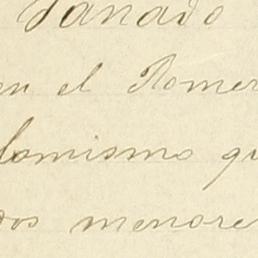 Ganado
en el Romer
lomismo qu
dos menore